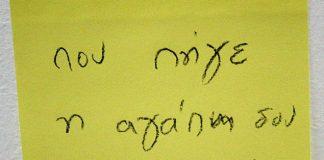 που πήγε
η αγάπη σου